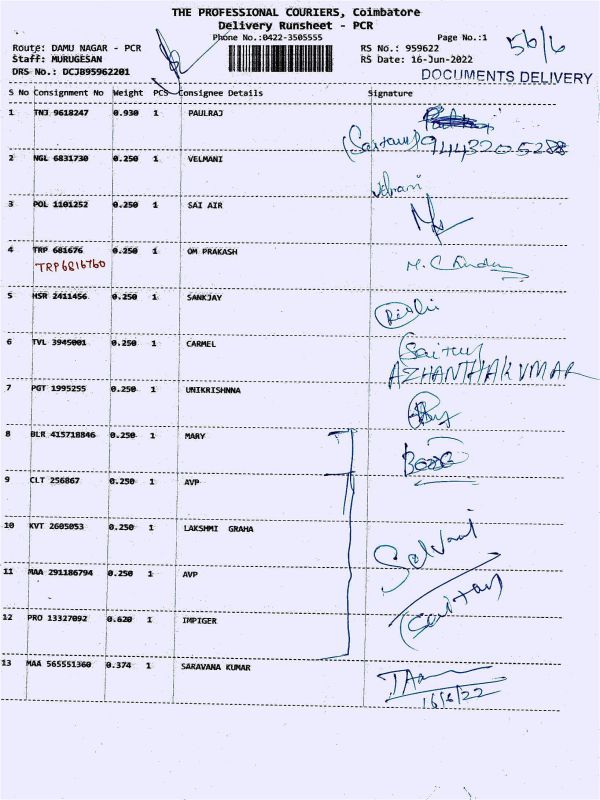 THE PROFESSIONAL COURIERS, Coimbatore
Delivery Runsheet - PCR
Phone No.:0422-3505555 Page No.:1 56/6
Route: DAMU NAGAR - PCR RS No.: 959622
Staff: MURUGESAN RS Date: 16-Jun-2022
DRS No.: DCJB95962201 DOCUMENTS DELIVERY
S No Consignment No Weight PCS Consignee Details Signature
1 TNJ 9618247 0.930 1 PAULRAJ
9443205288
2 NGL 6831730 0.250 1 VELMANI
Velmani
3 POL 1101252 0.250 1 SAI AIR
4 TRP 681676 0.250 1 OM PRAKASH
TRP6816760
5 MSR 2411456 0.250 1 SANKJAY
6 TVL 3945001 0.250 1 CARMEL
AZHANTHAKUMAR
7 PGT 1995255 0.250 1 UNIKRISHNNA
8 BLR 415718846 0.250 1 MARY
9 CLT 256867 0.250 1 AVP
10 KVT 2605053 0.250 1 LAKSHMI GRAHA
11 MAA 291186794 0.250 1 AVP
12 PRO 13327092 0.620 1 IMPIGER
13 MAA 565551360 0.374 1 SARAVANA KUMAR
16/6/22